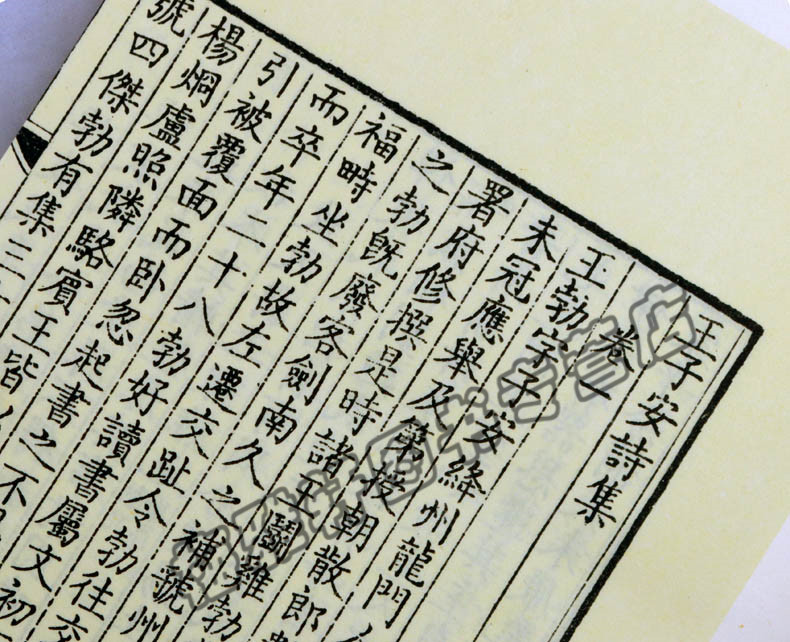 王子安詩集
卷一
王勃字子安絳州龍門人
未冠應舉及第授朝散郎
署府修撰是時諸王鬬雞勃
之勃既廢客劍南久之補虢州
福畤坐勃故左遷交趾令勃往交
而卒年二十八勃好讀書屬文初
引被覆面而卧忽起書之不
楊烱盧照隣駱賓王皆
號四傑勃有集三
轩图书专营店